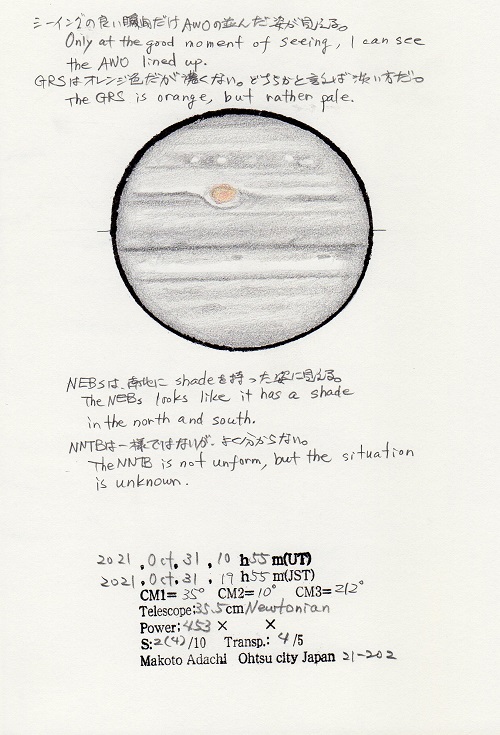 シーイングの良い瞬間だけAWOの並んだ姿が見える。
Only at the good moment of seeing, I can see
the AWO lined up.
GRSはオレンジ色だが濃くない。どちらかと言えば淡い方だ。
The GRS is orange, but rather pale.
NEBsは、南北に shadeを持った姿に見える。
The NEBs looks like it has a shade
in the north and south.
NNTBは一様ではないが、よく分からない。
The NNTB is not unform, but the situation
is unknown.
2021 , Oct. 31 , 10 h 55 m(UT)
2021 , Oct. 31 , 19 h 55 m(JST)
CM1= 35° CM2= 10° CM3= 212°
Telescope: 35.5cm Newtonian
Power: 453 × ×
S: 2(4) /10 Transp.: 4 /5
Makoto Adachi Ohtsu city Japan 21-202